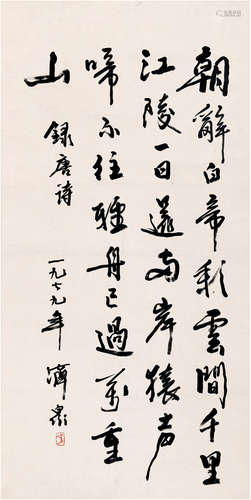 朝辭白帝彩雲間千里
江陵一日還兩岸猿声
啼不住輕舟已過萬重
山
録唐诗
一九七九年